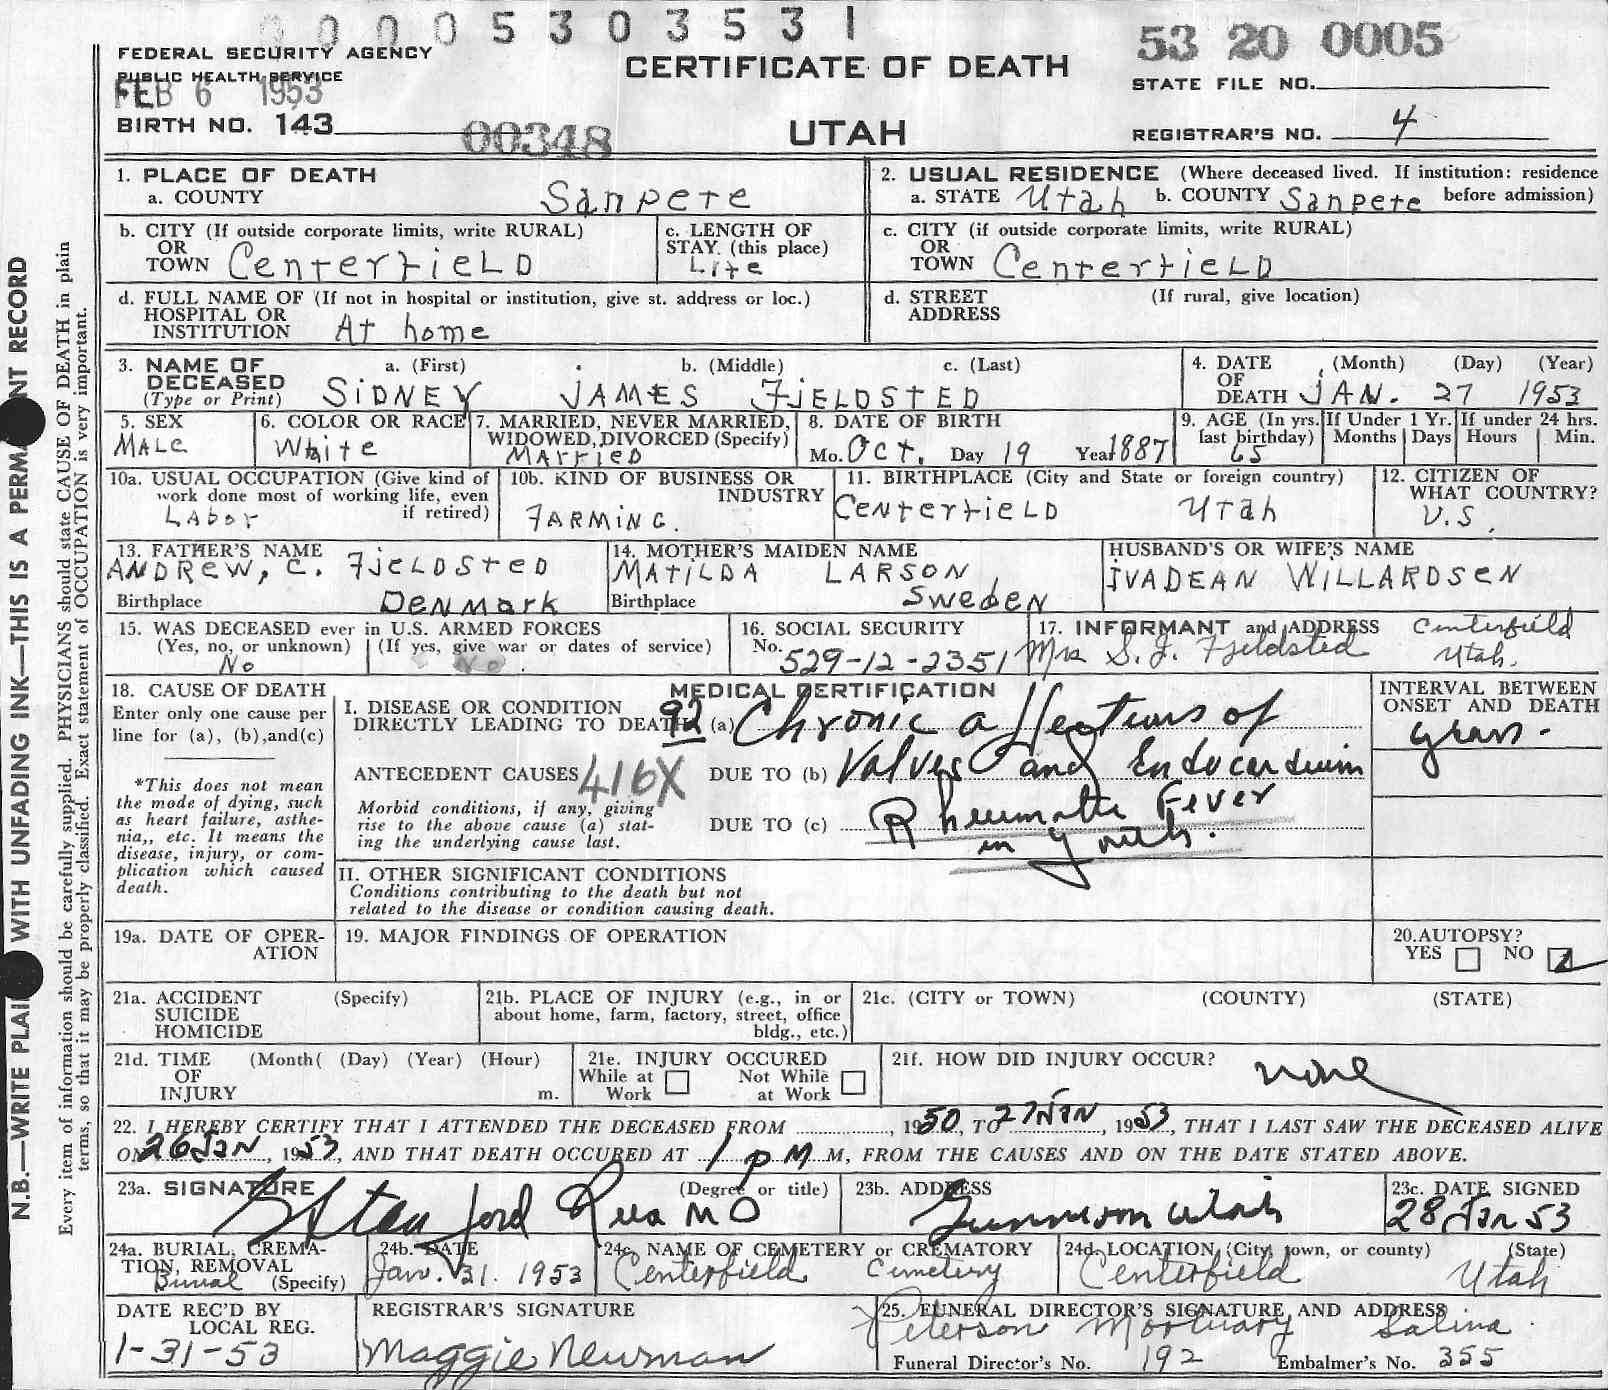 0000530353 1
53 20 0005
FEDERAL SECURITY AGENCY
PUBLIC HEALTH SERVICE
FEB 6 1953
CERTIFICATE OF DEATH
STATE FILE NO.
BIRTH NO. 143
00348
UTAH
REGISTRAR'S NO. 4
1. PLACE OF DEATH
a. COUNTY Sanpete
2. USUAL RESIDENCE (Where deceased lived. If institution: residence
a. STATE Utah b. COUNTY Sanpete before admission)
b. CITY (If outside corporate limits, write RURAL)
OR
TOWN Centerfield
c. LENGTH OF
STAY. (this place)
Life
c. CITY (if outside corporate limits, write RURAL)
OR
TOWN Centerfield
d. FULL NAME OF (If not in hospital or institution, give st. address or loc.)
HOSPITAL OR
INSTITUTION At home
d. STREET (If rural, give location)
ADDRESS
3. NAME OF a. (First) b. (Middle) c. (Last)
DECEASED
(Type or Print) SiDNEY JAMES FJELDSTED
4. DATE (Month) (Day) (Year)
OF
DEATH JAN. 27 1953
5. SEX
MALE
6. COLOR OR RACE
White
7. MARRIED, NEVER MARRIED,
WIDOWED, DIVORCED (Specify)
MARRIED
8. DATE OF BIRTH
Mo. OCT. Day 19 Year 1887
9. AGE (In yrs. If Under 1 Yr. If under 24 hrs.
last birthday) Months Days Hours Min.
65
10a. USUAL OCCUPATION (Give kind of
work done most of working life, even
if retired)
LABOR
10b. KIND OF BUSINESS OR
INDUSTRY
FARMING.
11. BIRTHPLACE (City and State or foreign country)
CENTERFIELD Utah
12. CITIZEN OF
WHAT COUNTRY?
U.S.
13. FATHER'S NAME
ANDREW, C. FJELDSTED
Birthplace DENMARK
14. MOTHER'S MAIDEN NAME
MATILDA LARSON
Birthplace SWEDEN
HUSBAND'S OR WIFE'S NAME
IVADEAN WILLARDSEN
15. WAS DECEASED ever in U.S. ARMED FORCES
(Yes, no, or unknown) (If yes, give war or dates of service)
No No.
16. SOCIAL SECURITY
No. 529-12-2351
17. INFORMANT and ADDRESS Centerfield
Mrs S. J. Fjeldsted Utah.
18. CAUSE OF DEATH
Enter only one cause per
line for (a), (b), and (c)
*This does not mean
the mode of dying, such
as heart failure, asthe-
nia,, etc. It means the
disease, injury, or com-
plication which caused
death.
MEDICAL CERTIFICATION
I. DISEASE OR CONDITION
DIRECTLY LEADING TO DEATH 92 (a) Chronic affections of
ANTECEDENT CAUSES 416X DUE TO (b) Valves and Endocardium
Morbid conditions, if any, giving
rise to the above cause (a) stat-
ing the underlying cause last.
DUE TO (c) Rheumatic Fever
in youth.
II. OTHER SIGNIFICANT CONDITIONS
Conditions contributing to the death but not
related to the disease or condition causing death.
INTERVAL BETWEEN
ONSET AND DEATH
years.
19a. DATE OF OPER-
ATION
19. MAJOR FINDINGS OF OPERATION
20. AUTOPSY?
YES NO
21a. ACCIDENT (Specify)
SUICIDE
HOMICIDE
21b. PLACE OF INJURY (e.g., in or
about home, farm, factory, street, office
bldg., etc.)
21c. (CITY or TOWN) (COUNTY) (STATE)
21d. TIME (Month( (Day) (Year) (Hour)
OF
INJURY m.
21e. INJURY OCCURED
While at Not While
Work at Work
21f. HOW DID INJURY OCCUR? none
22. I HEREBY CERTIFY THAT I ATTENDED THE DECEASED FROM , 1950, TO 27 JAN , 1953, THAT I LAST SAW THE DECEASED ALIVE
ON 26 JAN , 1953, AND THAT DEATH OCCURED AT 1 p M M, FROM THE CAUSES AND ON THE DATE STATED ABOVE.
23a. SIGNATURE (Degree or title)
G Stanford Rees MD
23b. ADDRESS
Gunnison Utah
23c. DATE SIGNED
28 Jan 53
24a. BURIAL, CREMA-
TION, REMOVAL
Burial (Specify)
24b. DATE
Jan. 31. 1953
24c. NAME OF CEMETERY or CREMATORY
Centerfield Cemetery
24d. LOCATION (City, town, or county) (State)
Centerfield Utah
DATE REC'D BY
LOCAL REG.
1-31-53
REGISTRAR'S SIGNATURE
Maggie Newman
25. FUNERAL DIRECTOR'S SIGNATURE AND ADDRESS
Peterson Mortuary Salina.
Funeral Director's No. 192 Embalmer's No. 355
N.B.—WRITE PLAI WITH UNFADING INK—THIS IS A PERMA NT RECORD
Every item of information should be carefully supplied. PHYSICIANS should state CAUSE OF DEATH in plain
terms, so that it may be properly classified. Exact statement of OCCUPATION is very important.